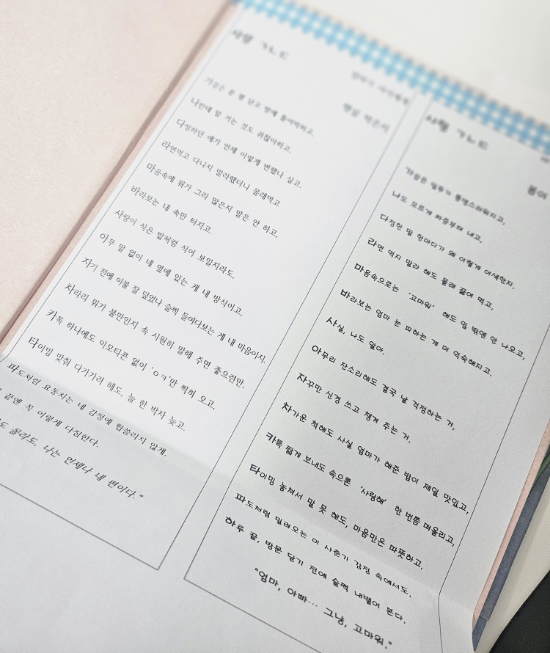 사랑 ㄱㄴㄷ
가끔은 문 쾅 닫고 방에 틀어박히고,
나한테 말 거는 것도 귀찮아하고,
다정하던 애가 언제 이렇게 변했나 싶고.
라면먹고 다니지 말라했더니 몰래먹고
마음속에 뭐가 그리 많은지 말은 안 하고,
바라보는 내 속만 터지고.
사랑이 식은 밥처럼 식어 보일지라도,
아무 말 없이 네 옆에 있는 게 내 방식이고.
자기 전에 이불 잘 덮었나 슬쩍 들여다보는 게 내 마음이지.
차라리 뭐가 불만인지 속 시원히 말해 주면 좋으련만.
카톡 하나에도 이모티콘 없이 'ㅇㅋ'만 찍히 오고,
타이밍 맞춰 다가가려 해도, 늘 한 박자 늦고.
파도처럼 요동치는 네 감정에 휩쓸리지 않게.
끝엔 꼭 이렇게 다짐한다.
몰라도, 나는 언제나 네 편이다."
사랑 ㄱㄴㄷ
가끔은 말투가 퉁명스러워지고,
나도 모르게 짜증부터 내고,
다정한 말 한마디가 왜 이렇게 어색한지.
라면 먹지 말라 해도 몰래 끓여 먹고,
마음속으로는 '고마워' 해도 입 밖엔 안 나오고,
바라보는 엄마 눈 피하는 게 더 익숙해지고.
사실, 나도 알아.
아무리 잔소리해도 결국 날 걱정하는 거,
자꾸만 신경 쓰고 챙겨 주는 거.
차가운 척해도 사실 엄마가 해준 밥이 제일 맛있고,
카톡 짧게 보내도 속으론 '사랑해' 한 번쯤 떠올리고,
타이밍 놓쳐서 말 못 해도, 마음만은 따뜻하고.
파도처럼 밀려오는 이 사춘기 감정 속에서도,
하루 끝, 방문 닫기 전에 슬쩍 내뱉어 본다.
"엄마, 아빠… 그냥, 고마워."